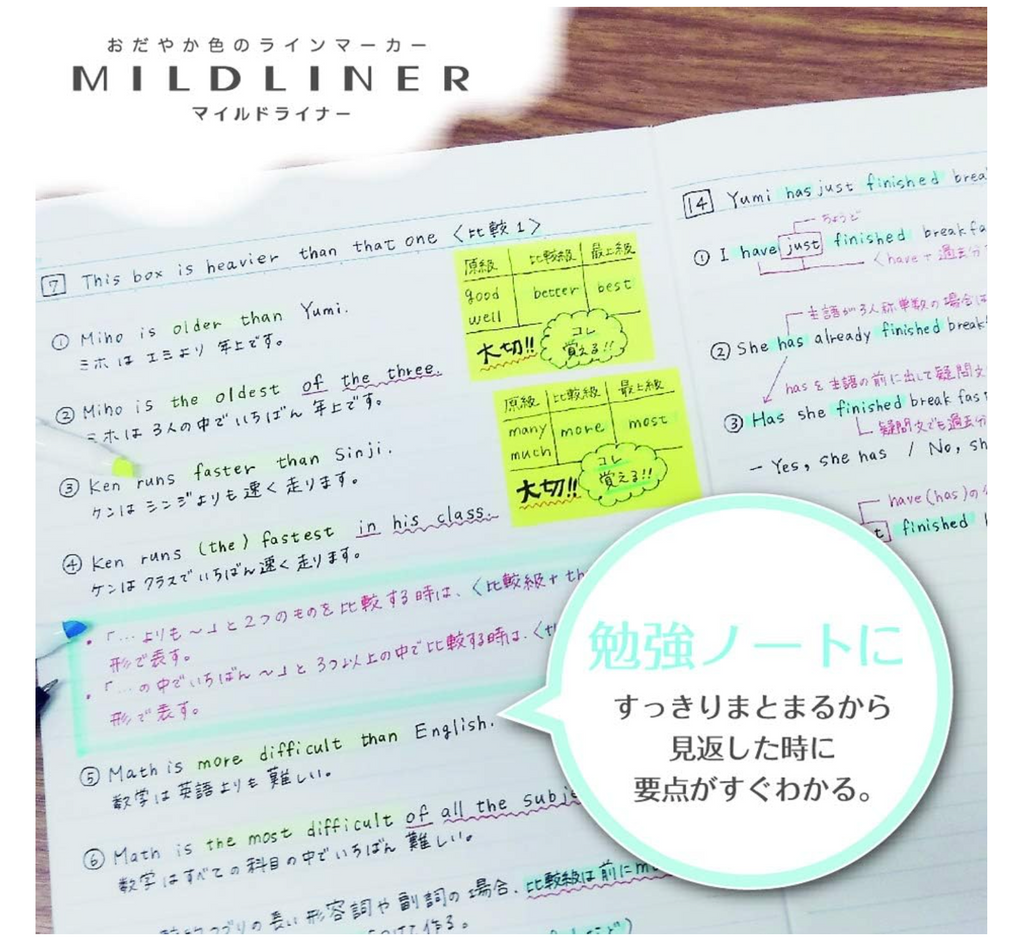 おだやか色のラインマーカー
MILDLINER
マイルドライナー
7 This box is heavier than that one <比較1>
① Miho is older than Yumi.
ミホは エミより 年上です。
② Miho is the oldest of the three.
ミホは 3人の中でいちばん 年上です。
③ Ken runs faster than Sinji.
ケンは シンジよりも 速く 走ります。
④ Ken runs (the) fastest in his class.
ケンは クラスでいちばん 速く 走ります。
・「…よりも〜」と2つのものを比較する時は、<比較級+th
形で表す。
・「…の中でいちばん〜」と3つ以上の中で比較する時は、<th
形で表す。
⑤ Math is more difficult than English.
数学は英語よりも 難しい。
⑥ Math is the most difficult of all the subje
数学はすべての科目の中でいちばん 難しい。
つづりの長い形容詞や副詞の場合、比較級は前にm
つけて作る。
原級 比較級 最上級
good better best
well
大切!! コレ
覚える!!
原級 比較級 最上級
many more most
much
大切!! コレ
覚える!!
14 Yumi has just finished brea
ちょうど
① I have just finished breakfa
<have+過去分
主語が3人称単数の場合は
② She has already finished break
hasを主語の前に出して疑問文
③ Has she finished breakfas
疑問文でも過去分
– Yes, she has / No, sh
have(has)の
t finished
勉強ノートに
すっきりまとまるから
見返した時に
要点がすぐわかる。